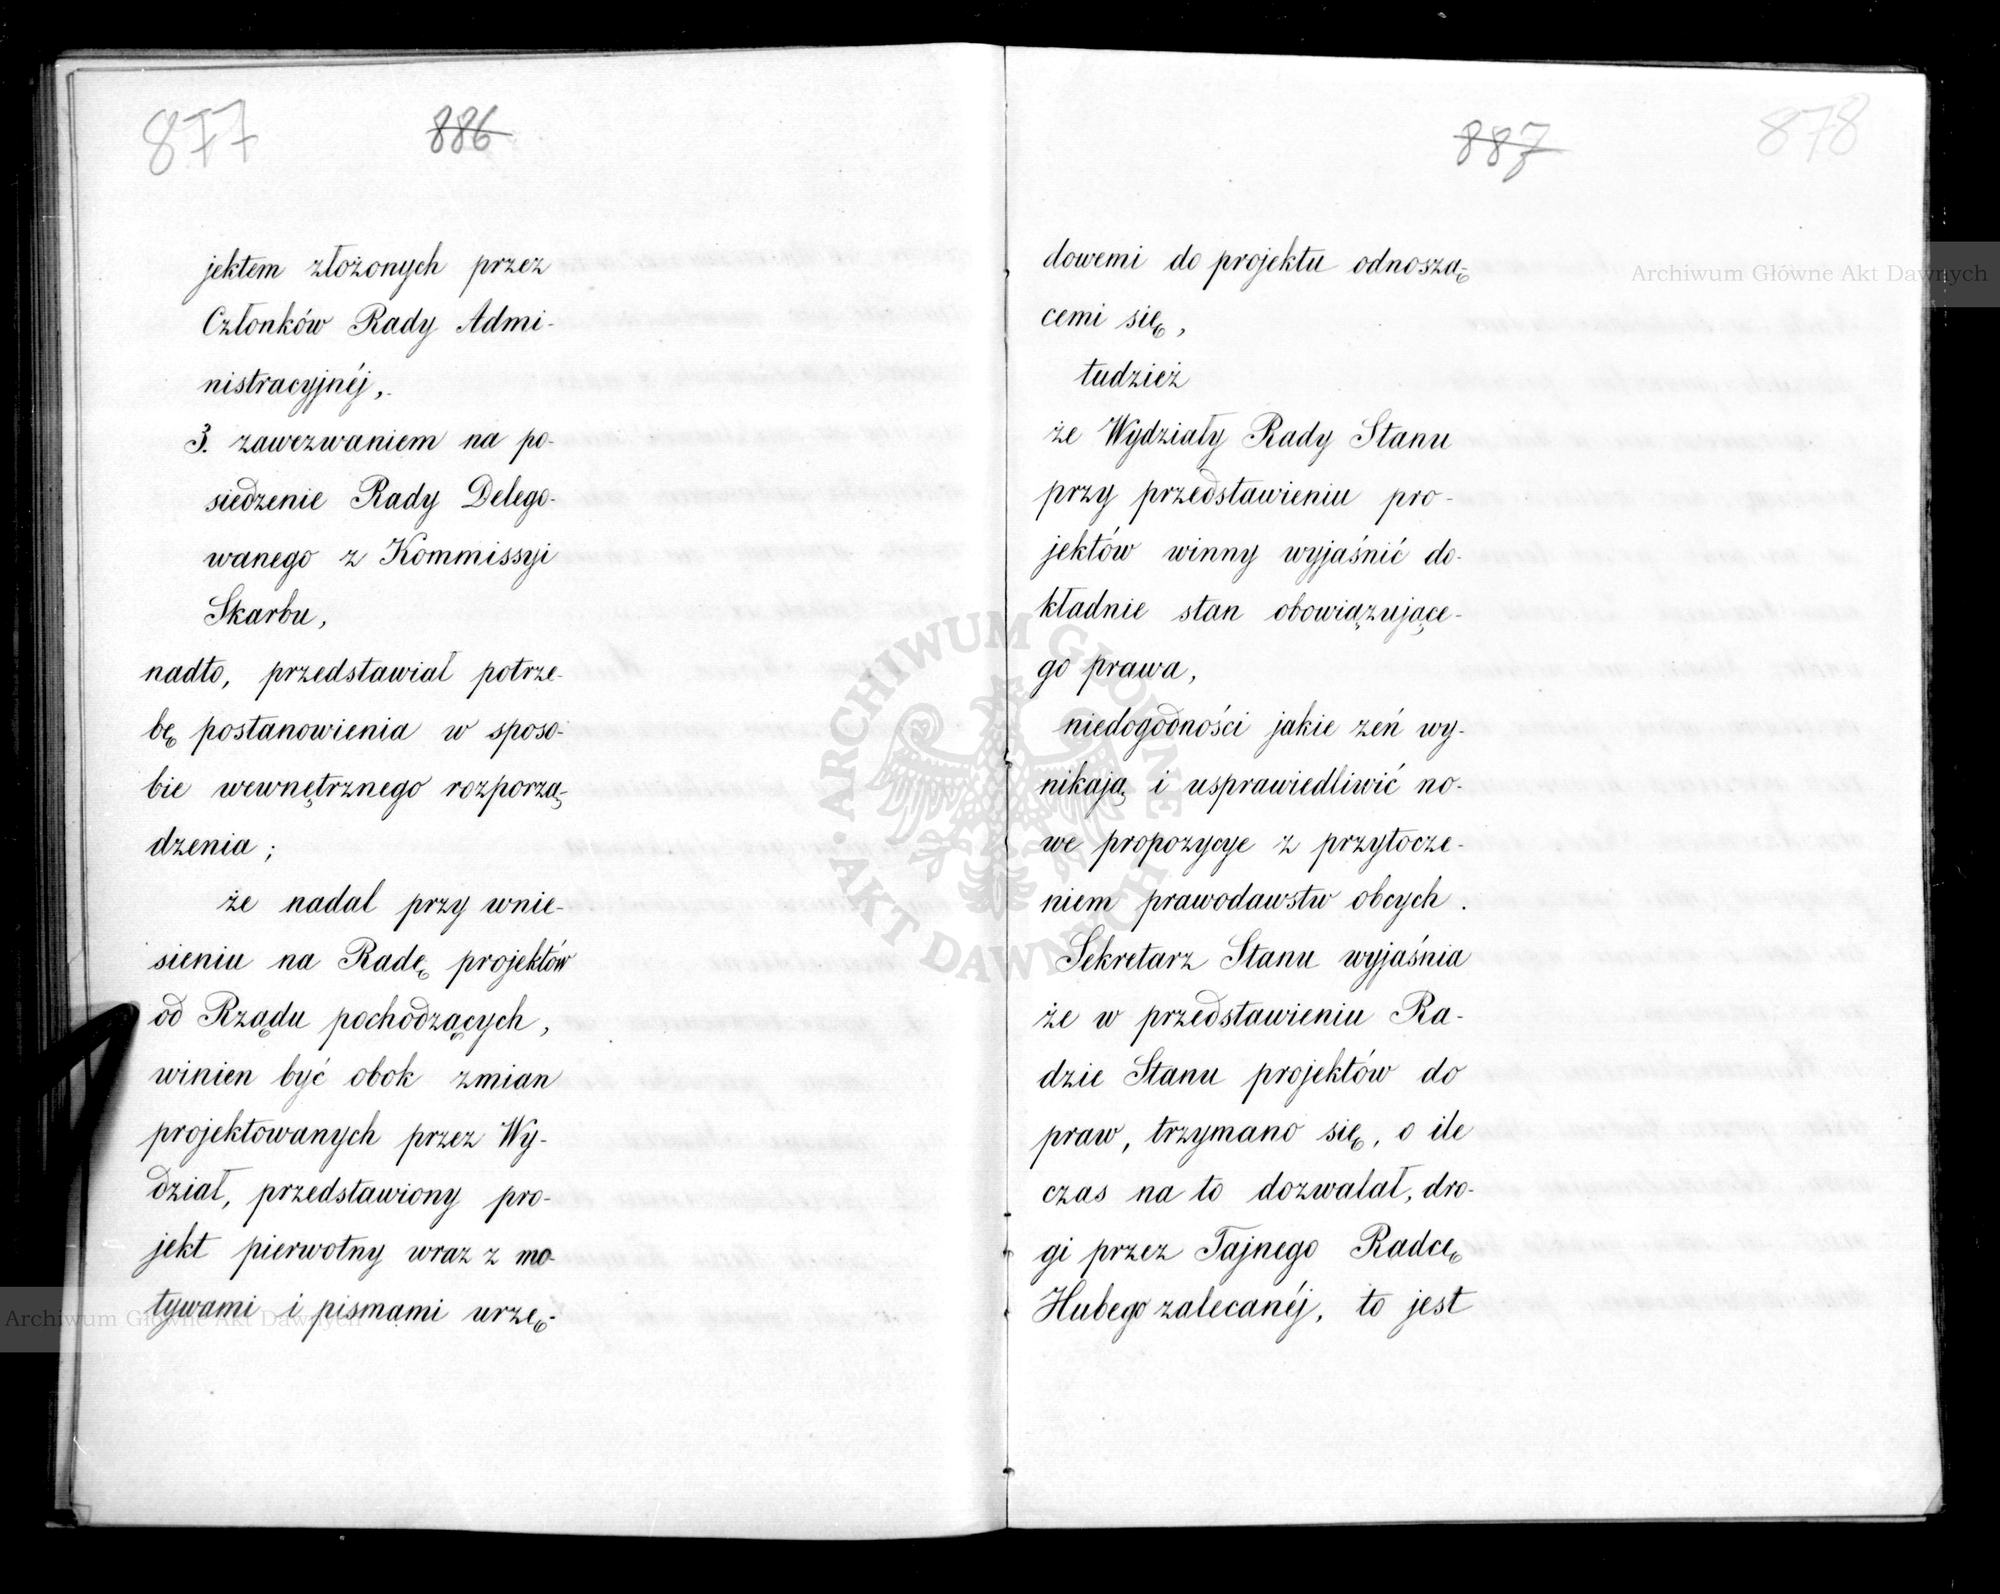 877
886
jektem złożonych przez
Członków Rady Admi-
nistracyjnéj,
3. zawezwaniem na po-
siedzenie Rady Delego-
wanego z Kommissyi
Skarbu,
nadto, przedstawiał potrze-
bę postanowienia w sposo-
bie wewnętrznego rozporzą-
dzenia;
że nadal przy wnie-
sieniu na Radę projektów
od Rządu pochodzących,
winien być obok zmian
projektowanych przez Wy-
dział, przedstawiony pro-
jekt pierwotny wraz z mo-
tywami i pismami urzę-
887
878
dowemi do projektu odnoszą-
cemi się,
tudzież
że Wydziały Rady Stanu
przy przedstawieniu pro-
jektów winny wyjaśnić do-
kładnie stan obowiązujące-
go prawa,
niedogodności jakie zeń wy-
nikają i usprawiedliwić no-
we propozycye z przytocze-
niem prawodawstw obcych.
Sekretarz Stanu wyjaśnia
że w przedstawieniu Ra-
dzie Stanu projektów do
praw, trzymano się, o ile
czas na to dozwalał, dro-
gi przez Tajnego Radcę
Hubego zalecanéj, to jest
Archiwum Główne Akt Dawnych
ARCHIWUM GŁÓWNE
AKT DAWNYCH
Archiwum Główne Akt Dawnych